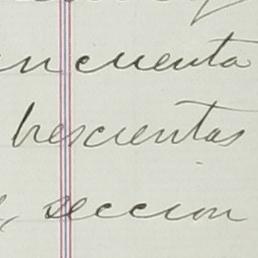 ncuenta
trescientas
, seccion